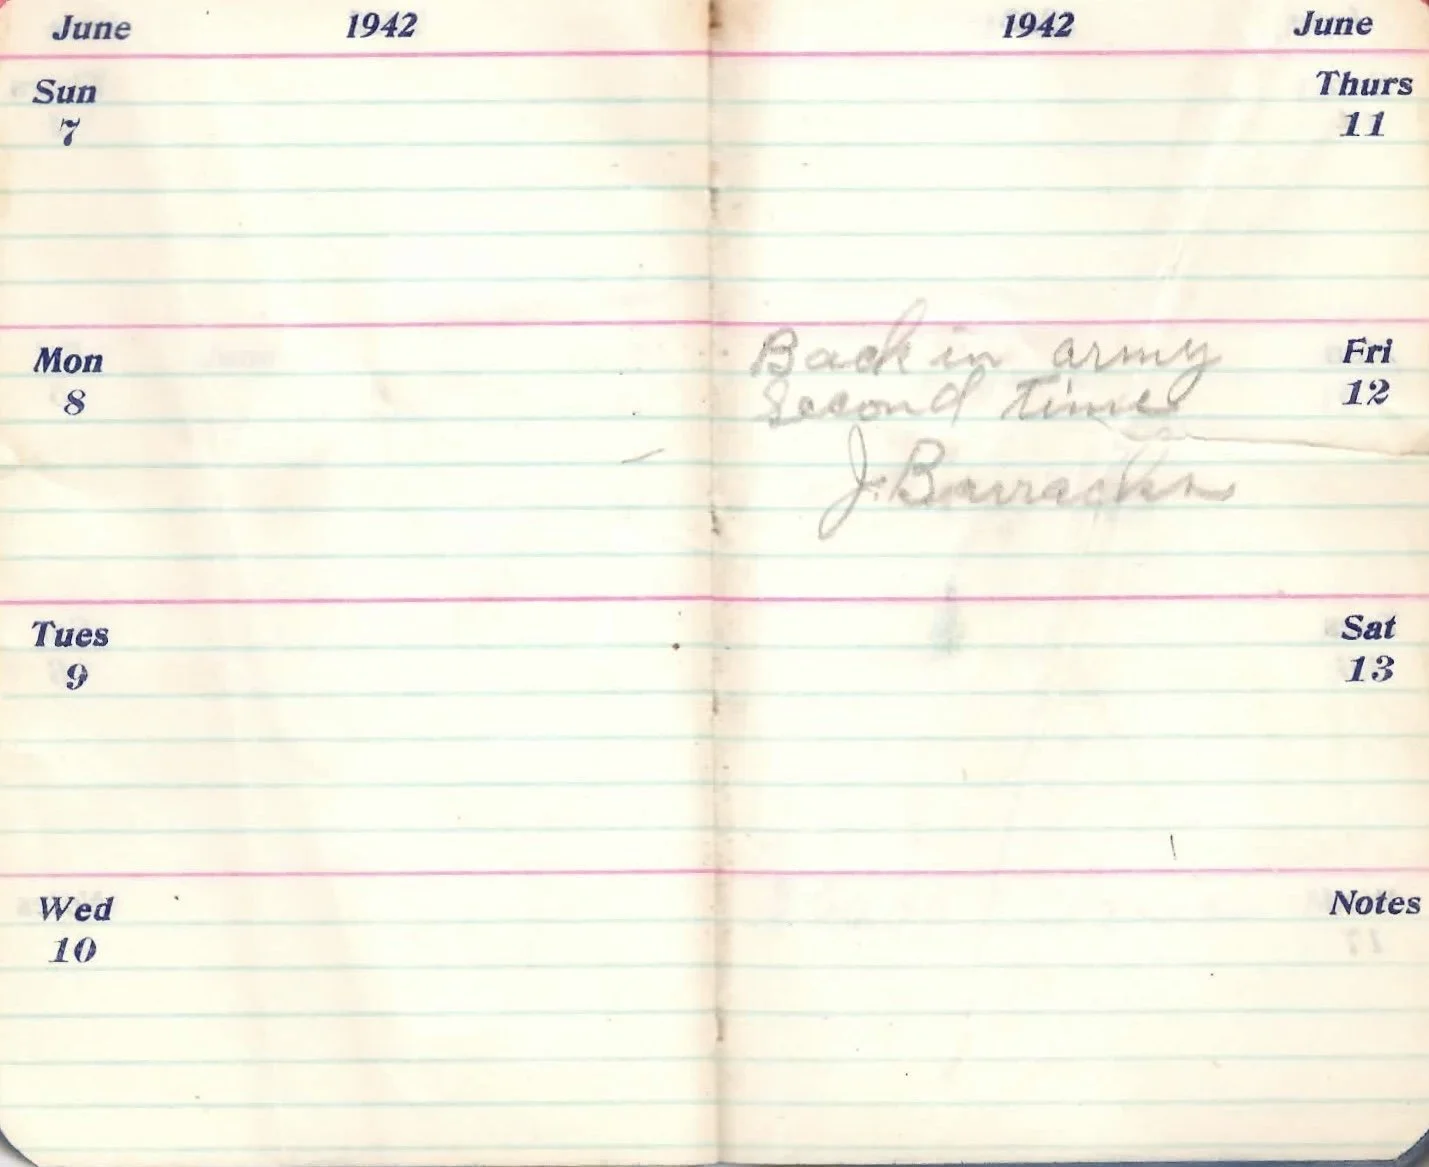 June 1942
Sun
7
Mon
8
Tues
9
Wed
10
1942 June
Thurs
11
Back in army
Second time
J. Barracks
Fri
12
Sat
13
Notes